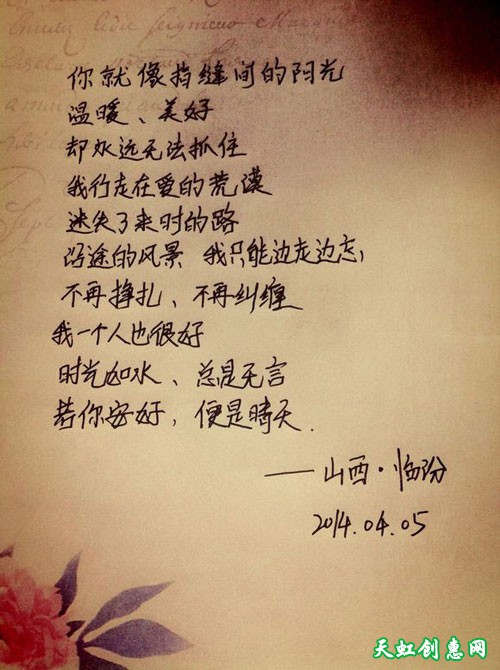 你就像挡缝间的阳光
温暖、美好
却永远无法抓住
我行走在爱的荒漠
迷失了来时的路
沿途的风景 我只能边走边忘
不再挣扎、不再纠缠
我一个人也很好
时光如水、总是无言
若你安好，便是晴天.
——山西·临汾
2014.04.05
天虹创惠网